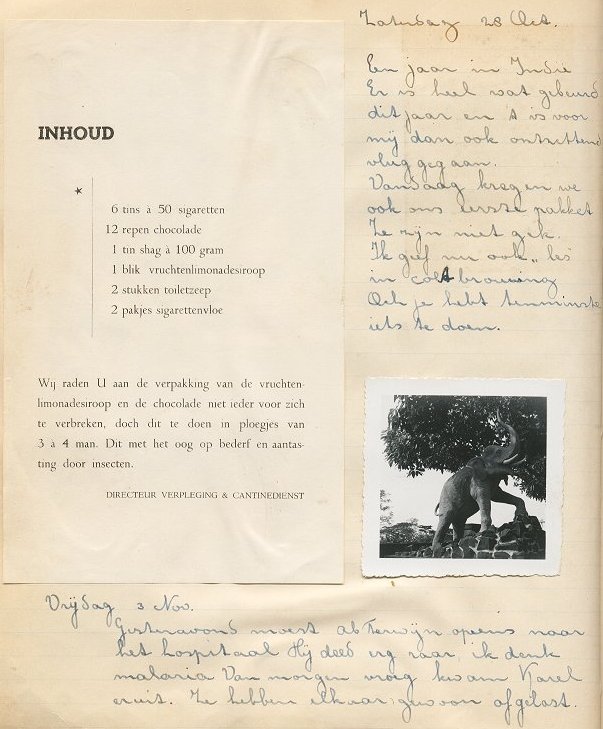 INHOUD
6 tins à 50 sigaretten
12 repen chocolade
1 tin shag à 100 gram
1 blik vruchtenlimonadesiroop
2 stukken toiletzeep
2 pakjes sigarettenvloe
Wij raden U aan de verpakking van de vruchten-
limonadesiroop en de chocolade niet ieder voor zich
te verbreken, doch dit te doen in ploegjes van
3 à 4 man. Dit met het oog op bederf en aantas-
ting door insecten.
DIRECTEUR VERPLEGING & CANTINEDIENST
Zaterdag 28 Oct.
Een jaar in Indië
Er is heel wat gebeurd
dit jaar en 't is voor
mij dan ook ontzettend
vlug gegaan.
Vandaag kregen we
ook ons eerste pakket
Ze zijn niet gek.
Ik geef nu ook "les"
in
Och je hebt tenminste
iets te doen.
Vrijdag 3 Nov.
Gisteravond moest ab Terwijn opeens naar
het hospitaal Hij deed erg raar, ik denk
malaria Van morgen vroeg kwam Karel
eruit. Ze hebben elkaar gewoon afgelost.